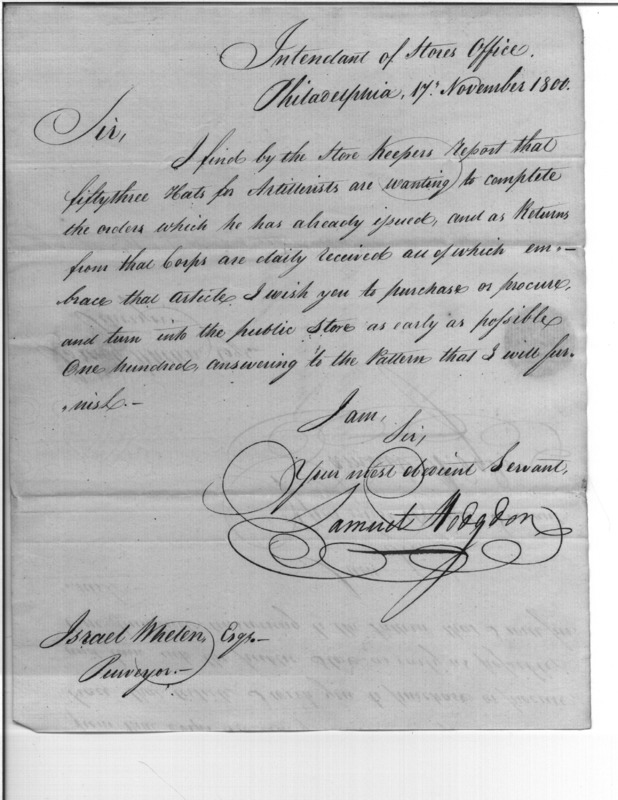 Intendant of Stores Office.
Philadelphia, 17th November 1800.
Sir,
I find by the Store Keepers report that
fiftythree Hats for Artillerists are wanting to complete
the orders which he has already issued, and as Returns
from that Corps are daily received all of which em-
brace that article. I wish you to purchase or procure,
and turn into the public Store as early as possible
One hundred, answering to the Pattern that I will fur-
nish.-
I am,
Sir,
Your most obedient Servant,
Samuel Hodgdon
Israel Whelen, Esqr.-
Purveyor.-